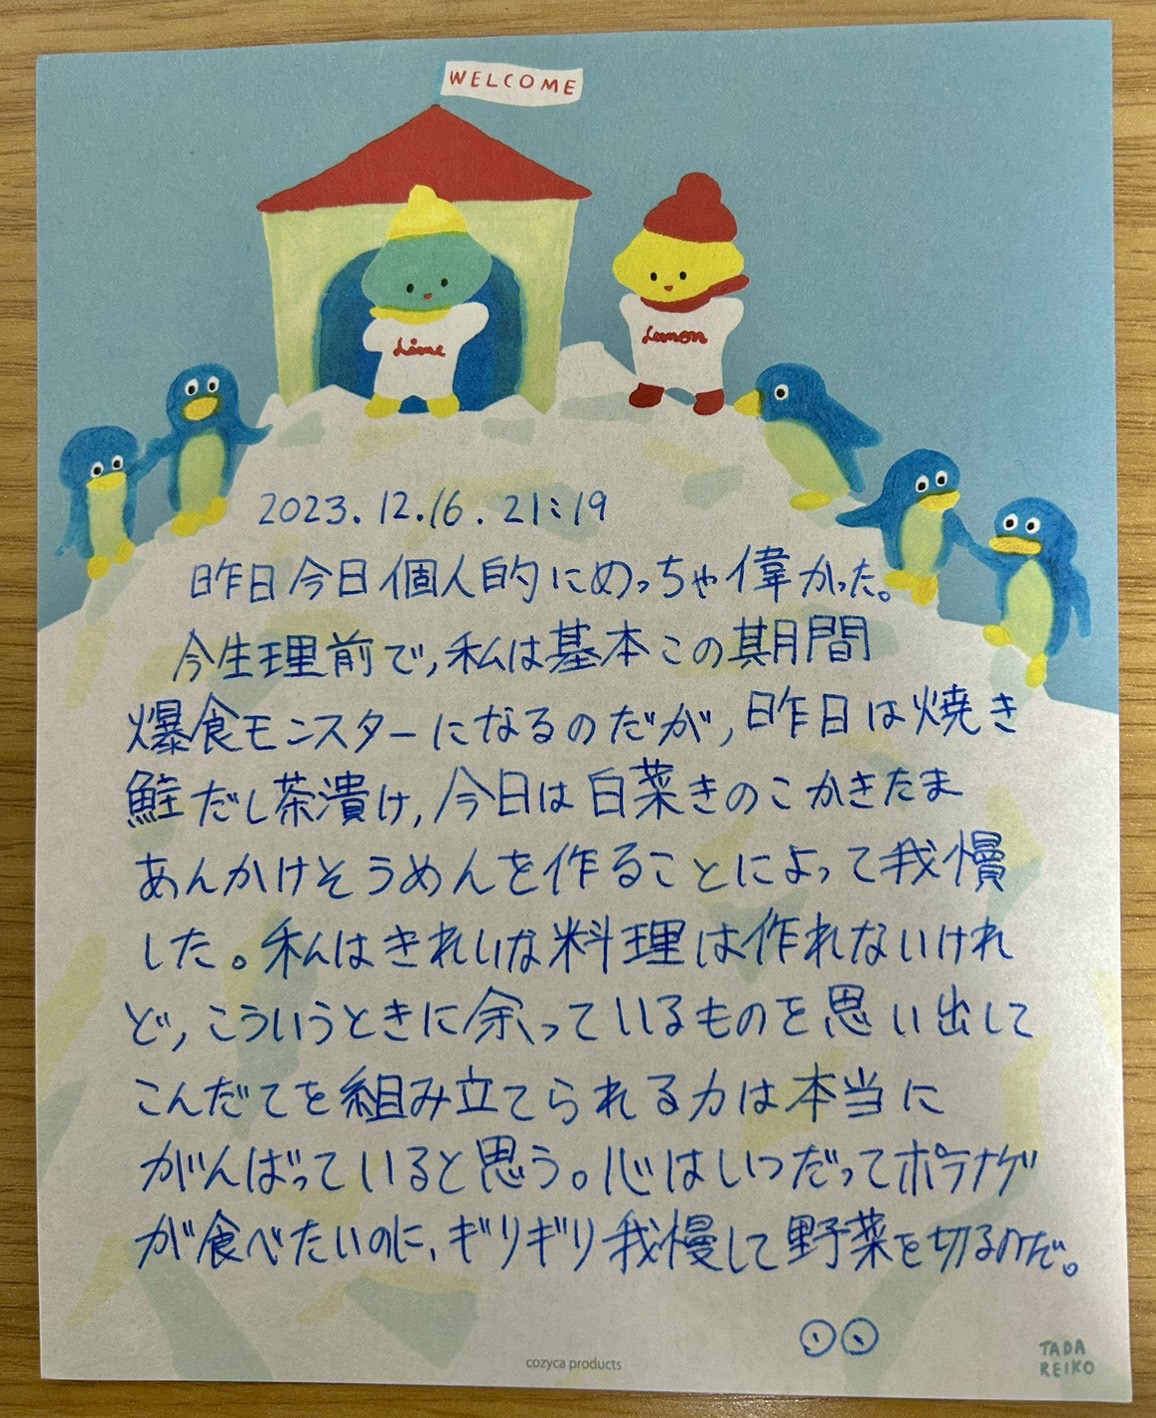 WELCOME
Lime
Lemon
2023.12.16.21:19
昨日今日個人的にめっちゃ偉かった。
今生理前で,私は基本この期間
爆食モンスターになるのだが,昨日は焼き
鮭だし茶漬け,今日は白菜きのこかきたま
あんかけそうめんを作ることによって我慢
した。私はきれいな料理は作れないけれ
ど,こういうときに余っているものを思い出して
こんだてを組み立てられる力は本当に
がんばっていると思う。心はいつだってポテナゲ
が食べたいのに、ギリギリ我慢して野菜を切るのだ。
cozyca products
TADA
REIKO